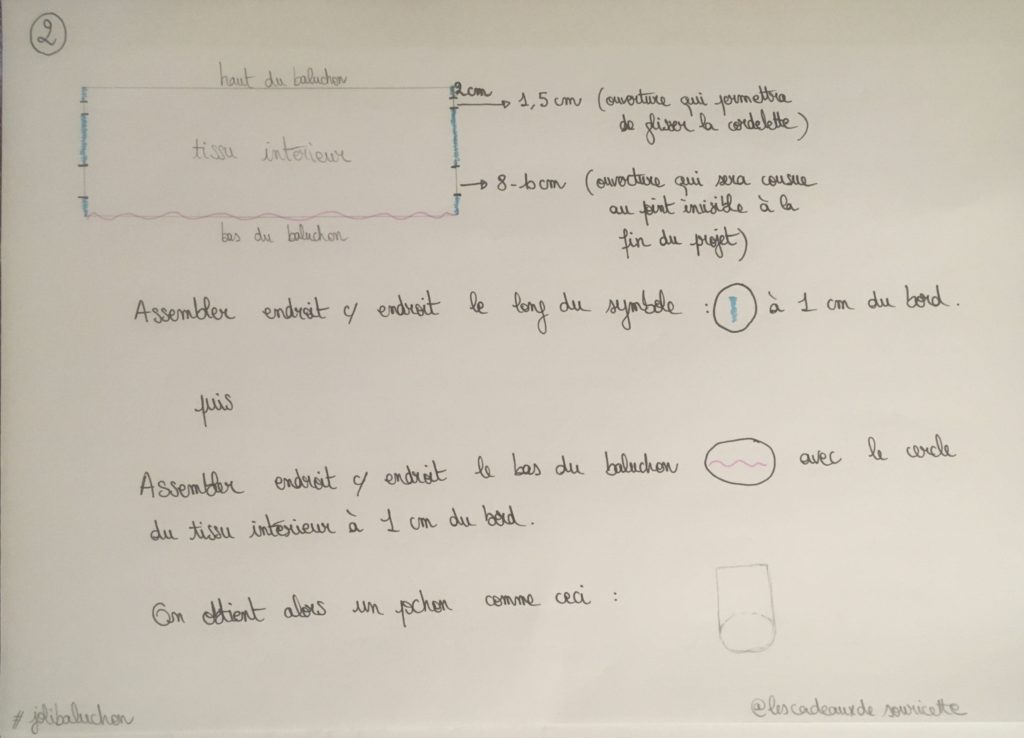 2
haut du baluchon
2cm
1,5 cm (ouverture qui permettra
de glisser la cordelette)
tissu intérieur
8-10cm (ouverture qui sera cousue
au point invisible à la
fin du projet)
bas du baluchon
Assembler endroit c/ endroit le long du symbole : à 1 cm du bord.
puis
Assembler endroit c/ endroit le bas du baluchon avec le cercle
du tissu intérieur à 1 cm du bord.
On obtient alors un pochon comme ceci :
# jolibaluchon
@lescadeauxde souricette